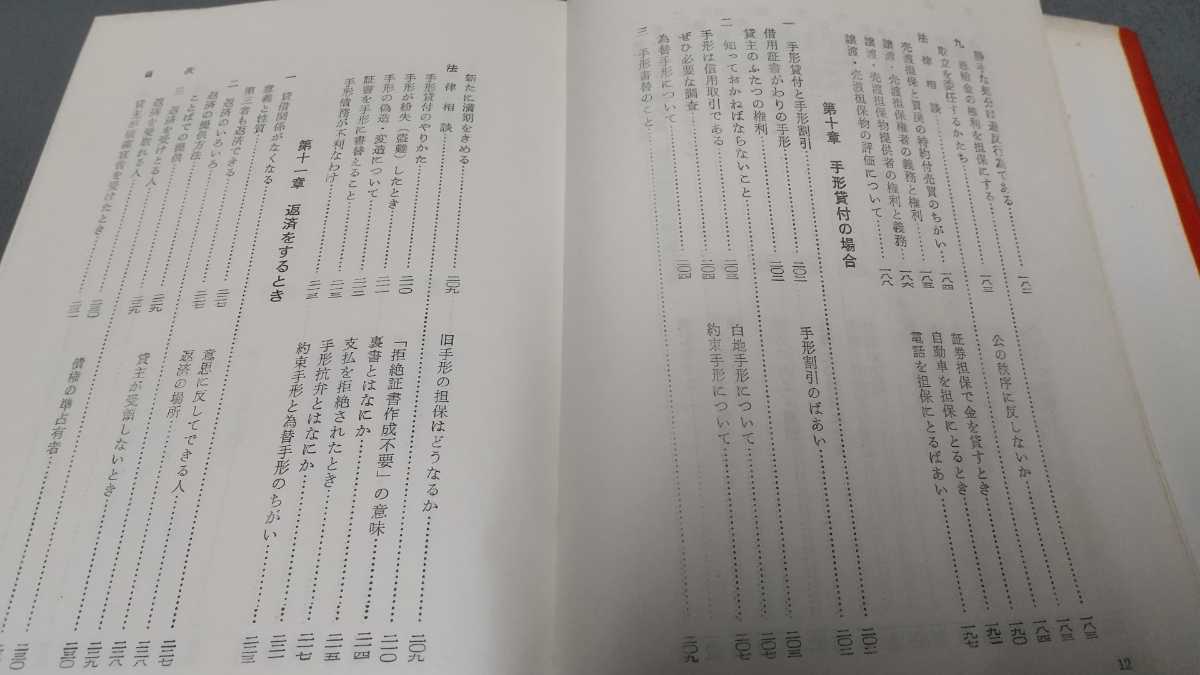 勝手な処分は違反行為である……一八二
九　恩給金の権利を担保にする……一八三
取立を委任するかたち……一八四
法律相談
売渡担保と買戻の特約付売買のちがい……一八五
譲渡・売渡担保権者の義務と権利……一八六
譲渡・売渡担保物提供者の権利と義務
譲渡・売渡担保物の評価について……一八八
公の秩序に反しないか
証券担保で金を貸すとき
自動車を担保にとるとき
電話を担保にとるばあい
第十章　手形貸付の場合
一　手形貸付と手形割引
借用証書がわりの手形……二〇二
貸主のふたつの権利……二〇二
二　知っておかねばならないこと
手形は信用取引である……二〇三
ぜひ必要な調査……二〇四
為替手形について……二〇四
三　手形書替のこと……二〇九
手形割引のばあい……二〇三
白地手形について
約束手形について
12
新たに満期をきめる……二〇九
法律相談
手形貸付のやりかた
手形が紛失（盗難）したとき……二一〇
手形の偽造・変造について……二一一
証書を手形に書替えること……二一二
手形債務が不利なわけ
旧手形の担保はどうなるか……二〇九
「拒絶証書作成不要」の意味……二一〇
裏書とはなにか……二一四
支払を拒絶されたとき……二一五
手形抗弁とはなにか……二一七
約束手形と為替手形のちがい
第十一章　返済をするとき
一　貸借関係がなくなる
意義と性質
第三者も返済できる……二二七
二　返済のいろいろ
返済の提供方法……二二七
ことばでの提供
三　返済を受けとる人……二二九
返済を受取れる人……二二九
貸主が破産宣告を受けたとき
意思に反してできる人
返済の場所
貸主が受領しないとき
債権の準占有者……二三〇
目　次